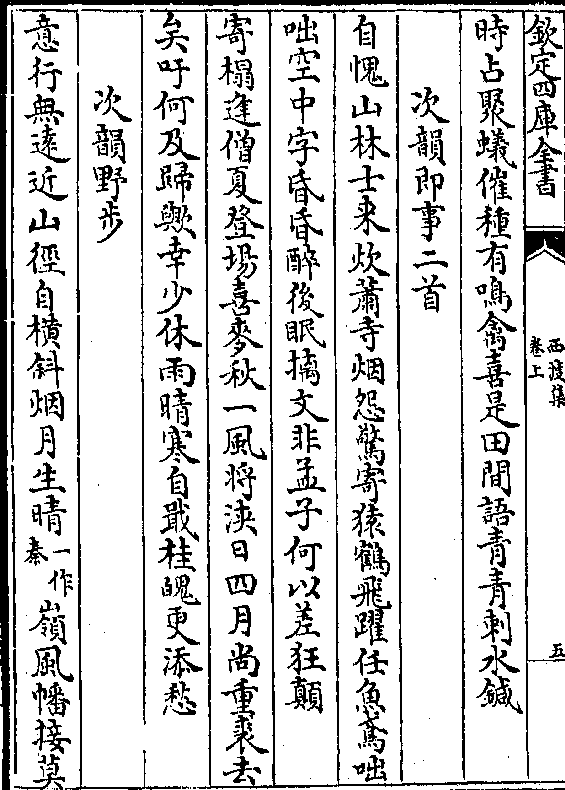 欽定四庫全書
西渡集
卷上
五
時占聚蟻催種有鳴禽喜是田間語青青刺水鍼
次韻即事二首
自愧山林士來炊蕭寺烟怨驚寄猿鶴飛躍任魚鳶咄
咄空中字昏昏醉後眠擒文非孟子何以差狂顛
寄榻逢僧夏登場喜麥秋一風將浹日四月尚重裘去
矣吁何及歸歟幸少休雨晴寒自戢桂魄更添愁
次韻野步
意行無遠近山徑自橫斜烟月生晴一作秦嶺風幡接莫